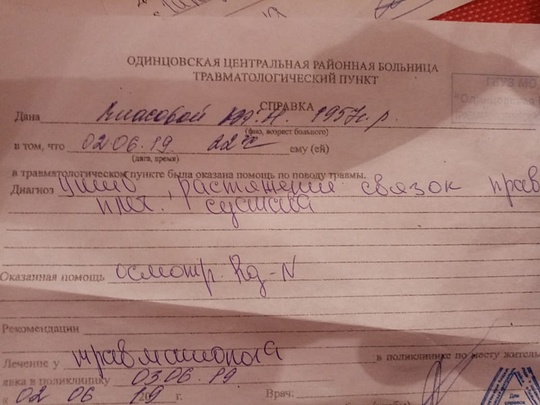 ОДИНЦОВСКАЯ ЦЕНТРАЛЬНАЯ РАЙОННАЯ БОЛЬНИЦА
ТРАВМАТОЛОГИЧЕСКИЙ ПУНКТ
СПРАВКА
Дана 1957 г.р.
(фио, возраст больного)
в том, что 02.06.19 22 ему (ей)
(дата, время)
в травматологическом пункте была оказана помощь по поводу травмы.
Диагноз Ушиб, растяжение связок прав
сустава
Оказанная помощь осмотр. Rg-N
Рекомендации
Лечение у травматолога в поликлинике по месту житель
авка в поликлинику 03.06.19
« 02 06 19 г. Врач:
Для